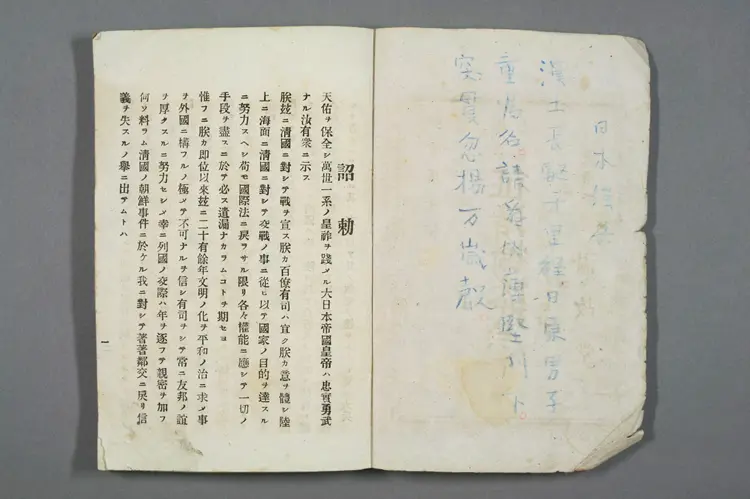 日本
漢土長駆千里程日東男子
重為名請看堅門下
突貫忽揚万歳
詔勅
天佑ヲ保全シ萬世一系ノ皇祚ヲ踐メル大日本帝國皇帝ハ忠實勇武
ナル汝有衆ニ示ス
朕玆ニ清國ニ對シテ戰ヲ宣ス朕カ百僚有司ハ宜ク朕カ意ヲ體シ陸
上ニ海面ニ清國ニ對シテ交戰ノ事ニ從ヒ以テ國家ノ目的ヲ達スル
ニ努力スヘシ苟モ國際法ニ戾ラサル限リ各々權能ニ應シテ一切ノ
手段ヲ盡スニ於テ必ス遺漏ナカラムコトヲ期セヨ
惟フニ朕カ即位以來玆ニ二十有餘年文明ノ化ヲ平和ノ治ニ求メ事
ヲ外國ニ構フルノ極メテ不可ナルヲ信シ有司ヲシテ常ニ友邦ノ誼
ヲ厚クスルニ努力セシメ幸ニ列國ノ交際ハ年ヲ逐フテ親密ヲ加フ
何ソ料ラム清國ノ朝鮮事件ニ於ケル我ニ對シテ著著鄰交ニ戾リ信
義ヲ失スルノ擧ニ出テムトハ
一